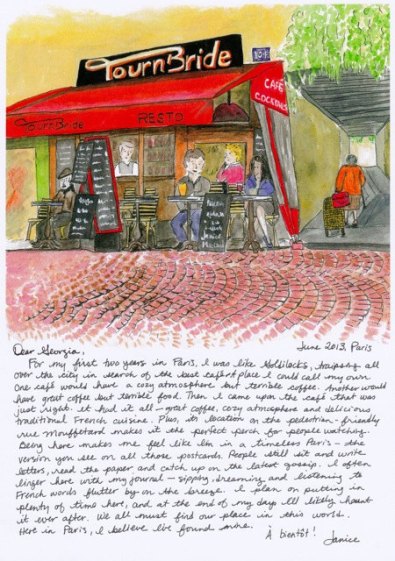 TournBride
104
CAFÉ
COCKTAILS
TournBride
RESTO
Dear Georgia,
June 2013, Paris
For my first two years in Paris, I was like Goldilocks, traipsing all
over the city in search of the best café—a place I could call my own.
One café would have a cozy atmosphere but terrible coffee. Another would
have great coffee but terrible food. Then I came upon the café that was
just right. It had it all—great coffee, cozy atmosphere and delicious
traditional French cuisine. Plus, its location on the pedestrian-friendly
rue Mouffetard makes it the perfect perch for people watching.
Being here makes me feel like I'm in a timeless Paris—the
version you see on all those postcards. People still sit and write
letters, read the paper and catch up on the latest gossip. I often
linger here with my journal—sipping, dreaming and listening to
French words flutter by on the breeze. I plan on putting in
plenty of time here, and at the end of my days I'll likely haunt
it ever after. We all must find our place in this world.
Here in Paris, I believe I've found mine.
À bientôt!
Janice